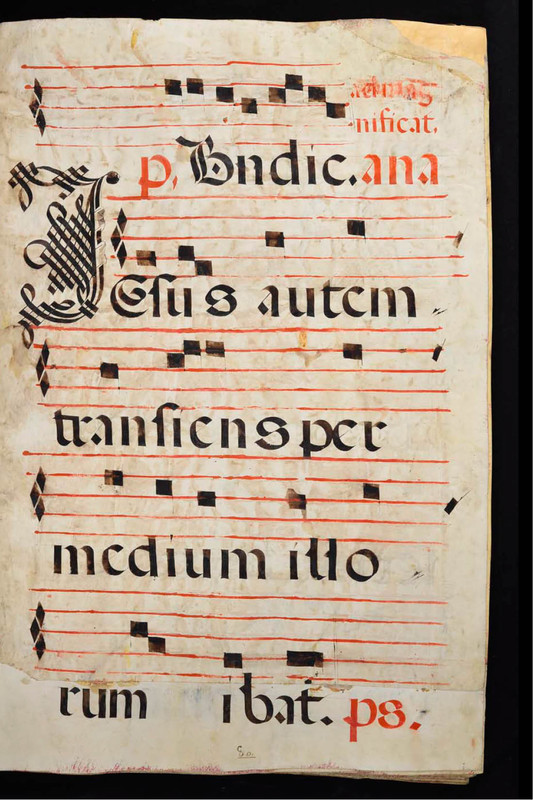 ad mag
nificat.
p. Bndic. ana
IEsus autem
transiens per
medium illo
rum ibat. ps.